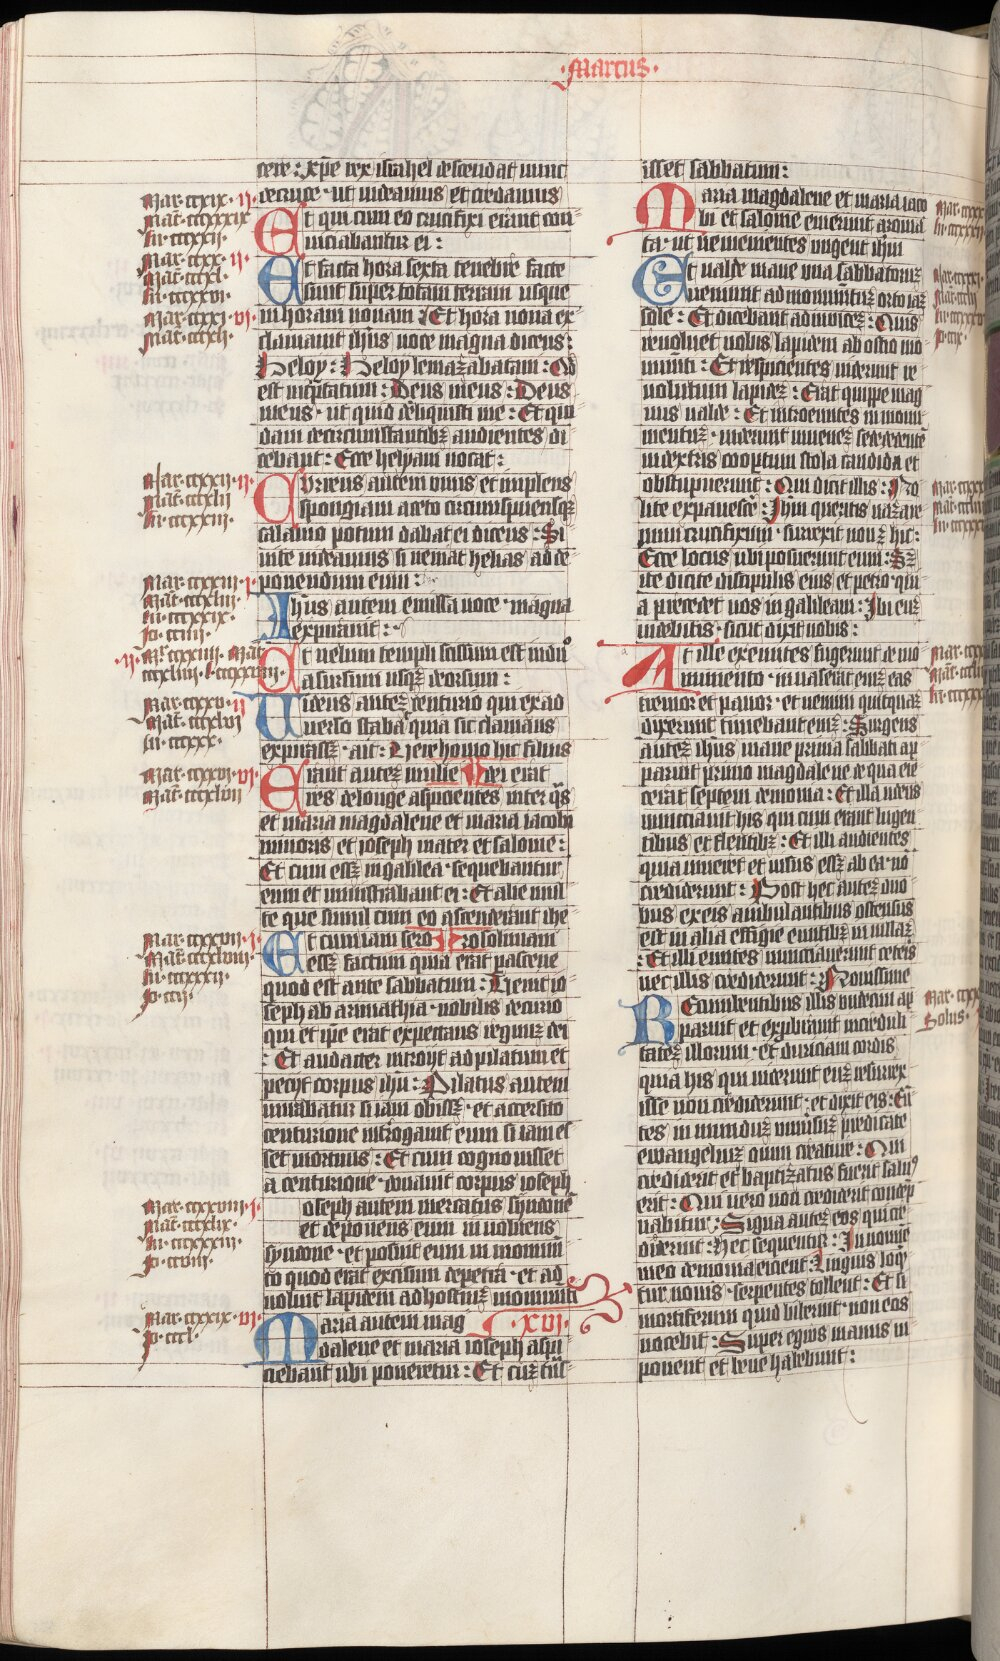 ·Marcus·
cere : xpe rex israhel descendat nunc
decruce · ut uideamus et credamus
Et qui cum eo crucifixi erant con
uiciabantur ei :
Et facta hora sexta tenebre facte
sunt super totam terram usque
in horam nonam : Et hora nona ex
clamauit ihus uoce magna dicens :
Heloy : Heloy lemazabatani : Qd
est inpretatum : Deus meus : Deus
meus · ut quid dereliquisti me : Et qui
dam decircumstantibz audientes di
cebant : Ecce helyam uocat :
Curens autem unus et inplens
spongiam aceto circumponensqz
calamo potum dabat ei dicens : Si
nite uideamus si ueniat helias ad de
ponendum eum :
Ihus autem emissa uoce · magna
expirauit :
Et uelum templi scissum est in duo
a sursum usqz deorsum :
Uidens autez centurio qui ex ad
uerso stabat quia sic clamans
expirassz · ait : Uere homo hic filius
Erant autez mulie dei erat
res delonge aspicientes inter qs
et maria magdalene et maria iacobi
minoris et ioseph mater et salome :
Et cum essz in galilea · sequebantur
eum et ministrabant ei : Et alie mul
te que simul cum eo ascenderant ihe
Et cum iam sero rosolimam
essz factum quia erat pasceue
quod est ante sabbatum : Uenit io
seph ab arimathia · nobilis decurio
qui et ipe erat expectans regnuz dei
: Et audacter introyt ad pilatum et
pecyt corpus ihu : Pilatus autem
mirabatur si iam obissz · et accersito
centurione introgauit eum si iam es
set mortuus : Et cum cognouisset
a centurione · donauit corpus ioseph
Ioseph autem mercatus syndone
et deponens eum inuoluens
syndone · et posuit eum in monum
to quod erat excisum depetra · et ad
uoluit lapidem ad hostiuz monumti
Maria autem mag C · xvi ·
dalene et maria ioseph aspi
ciebant ubi poneretur : Et cuz tns
isset sabbatum :
Maria magdalene et maria iaco
bi et salome emerunt aroma
ta · ut uenientes ungent ihm
Et ualde mane una sabbatoruz
ueniunt ad monumtuz orto iaz
sole : Et dicebant adinuicez : Quis
reuoluet nobis lapidem ab ostio mo
numti : Et respicientes uiderunt re
uolutum lapidez : Erat quippe mag
nus ualde : Et introeuntes in monu
mentuz · uiderunt iuuenez sedentem
indextris coopertum stola candida et
obstupuerunt : Qui dicit illis : No
lite expauesce : Ihm queritis nazare
num crucifixum · surrexit non ē hic :
Ecce locus ubi posuerunt eum : Sz
ite dicite discipulis eius et petro · qui
a precedet uos in galileam : Ibi eum
uidebitis · sicut dixit uobis :
At ille exeuntes fugerunt de mo
numento · inuaserat enz eas
tremor et pauor · et nemini quitquaz
dixerunt timebant enz : Surgens
autez ihus mane prima sabbati ap
paruit primo magdalene de qua eie
cerat septem demonia : Et illa uadens
nunciauit his qui cum erant lugen
tibus et flentibz : Et illi audientes
quia uiueret et uisus essz ab ea · no
crediderunt : Post hec autez duo
bus ex eis ambulantibus ostensus
est in alia effigie euntibz in uillaz
: Et illi euntes nunciauerunt ceteris
nec illis crediderunt : Nouissime
Recumbentibus illis undecim ap
paruit et exprobrauit increduli
tatez illorum · et duriciam cordis
quia his qui uiderunt enz resurrex
isse non crediderunt · et dixit eis : Eu
tes in munduz uniuersuz predicate
ewangeliuz omni creature : Qui
crediderit et baptizatus fuerit saluus
erit : Qui uero non crediderit condep
nabitur : Signa autez eos qui cre
diderint · hec sequentur : In nomine
meo demonia eicient : Linguis loq
tur nouis · serpentes tollent : Et si
mortiferum quid biberint · non eos
nocebit : Super egros manus in
ponent et bene habebunt :
Mar · ccxix · ii ·
Mar · ccxx · ii ·
Mar · ccxxi · vi ·
Mar · ccxxii · ii ·
Mar · ccxxiii · i ·
Mar · ccxxv · ii
Mar · ccxxvi · vi ·
Mar · ccxxvii · i ·
Mar · ccxxviii · i ·
Mar · ccxxix · vi ·
Solus ·